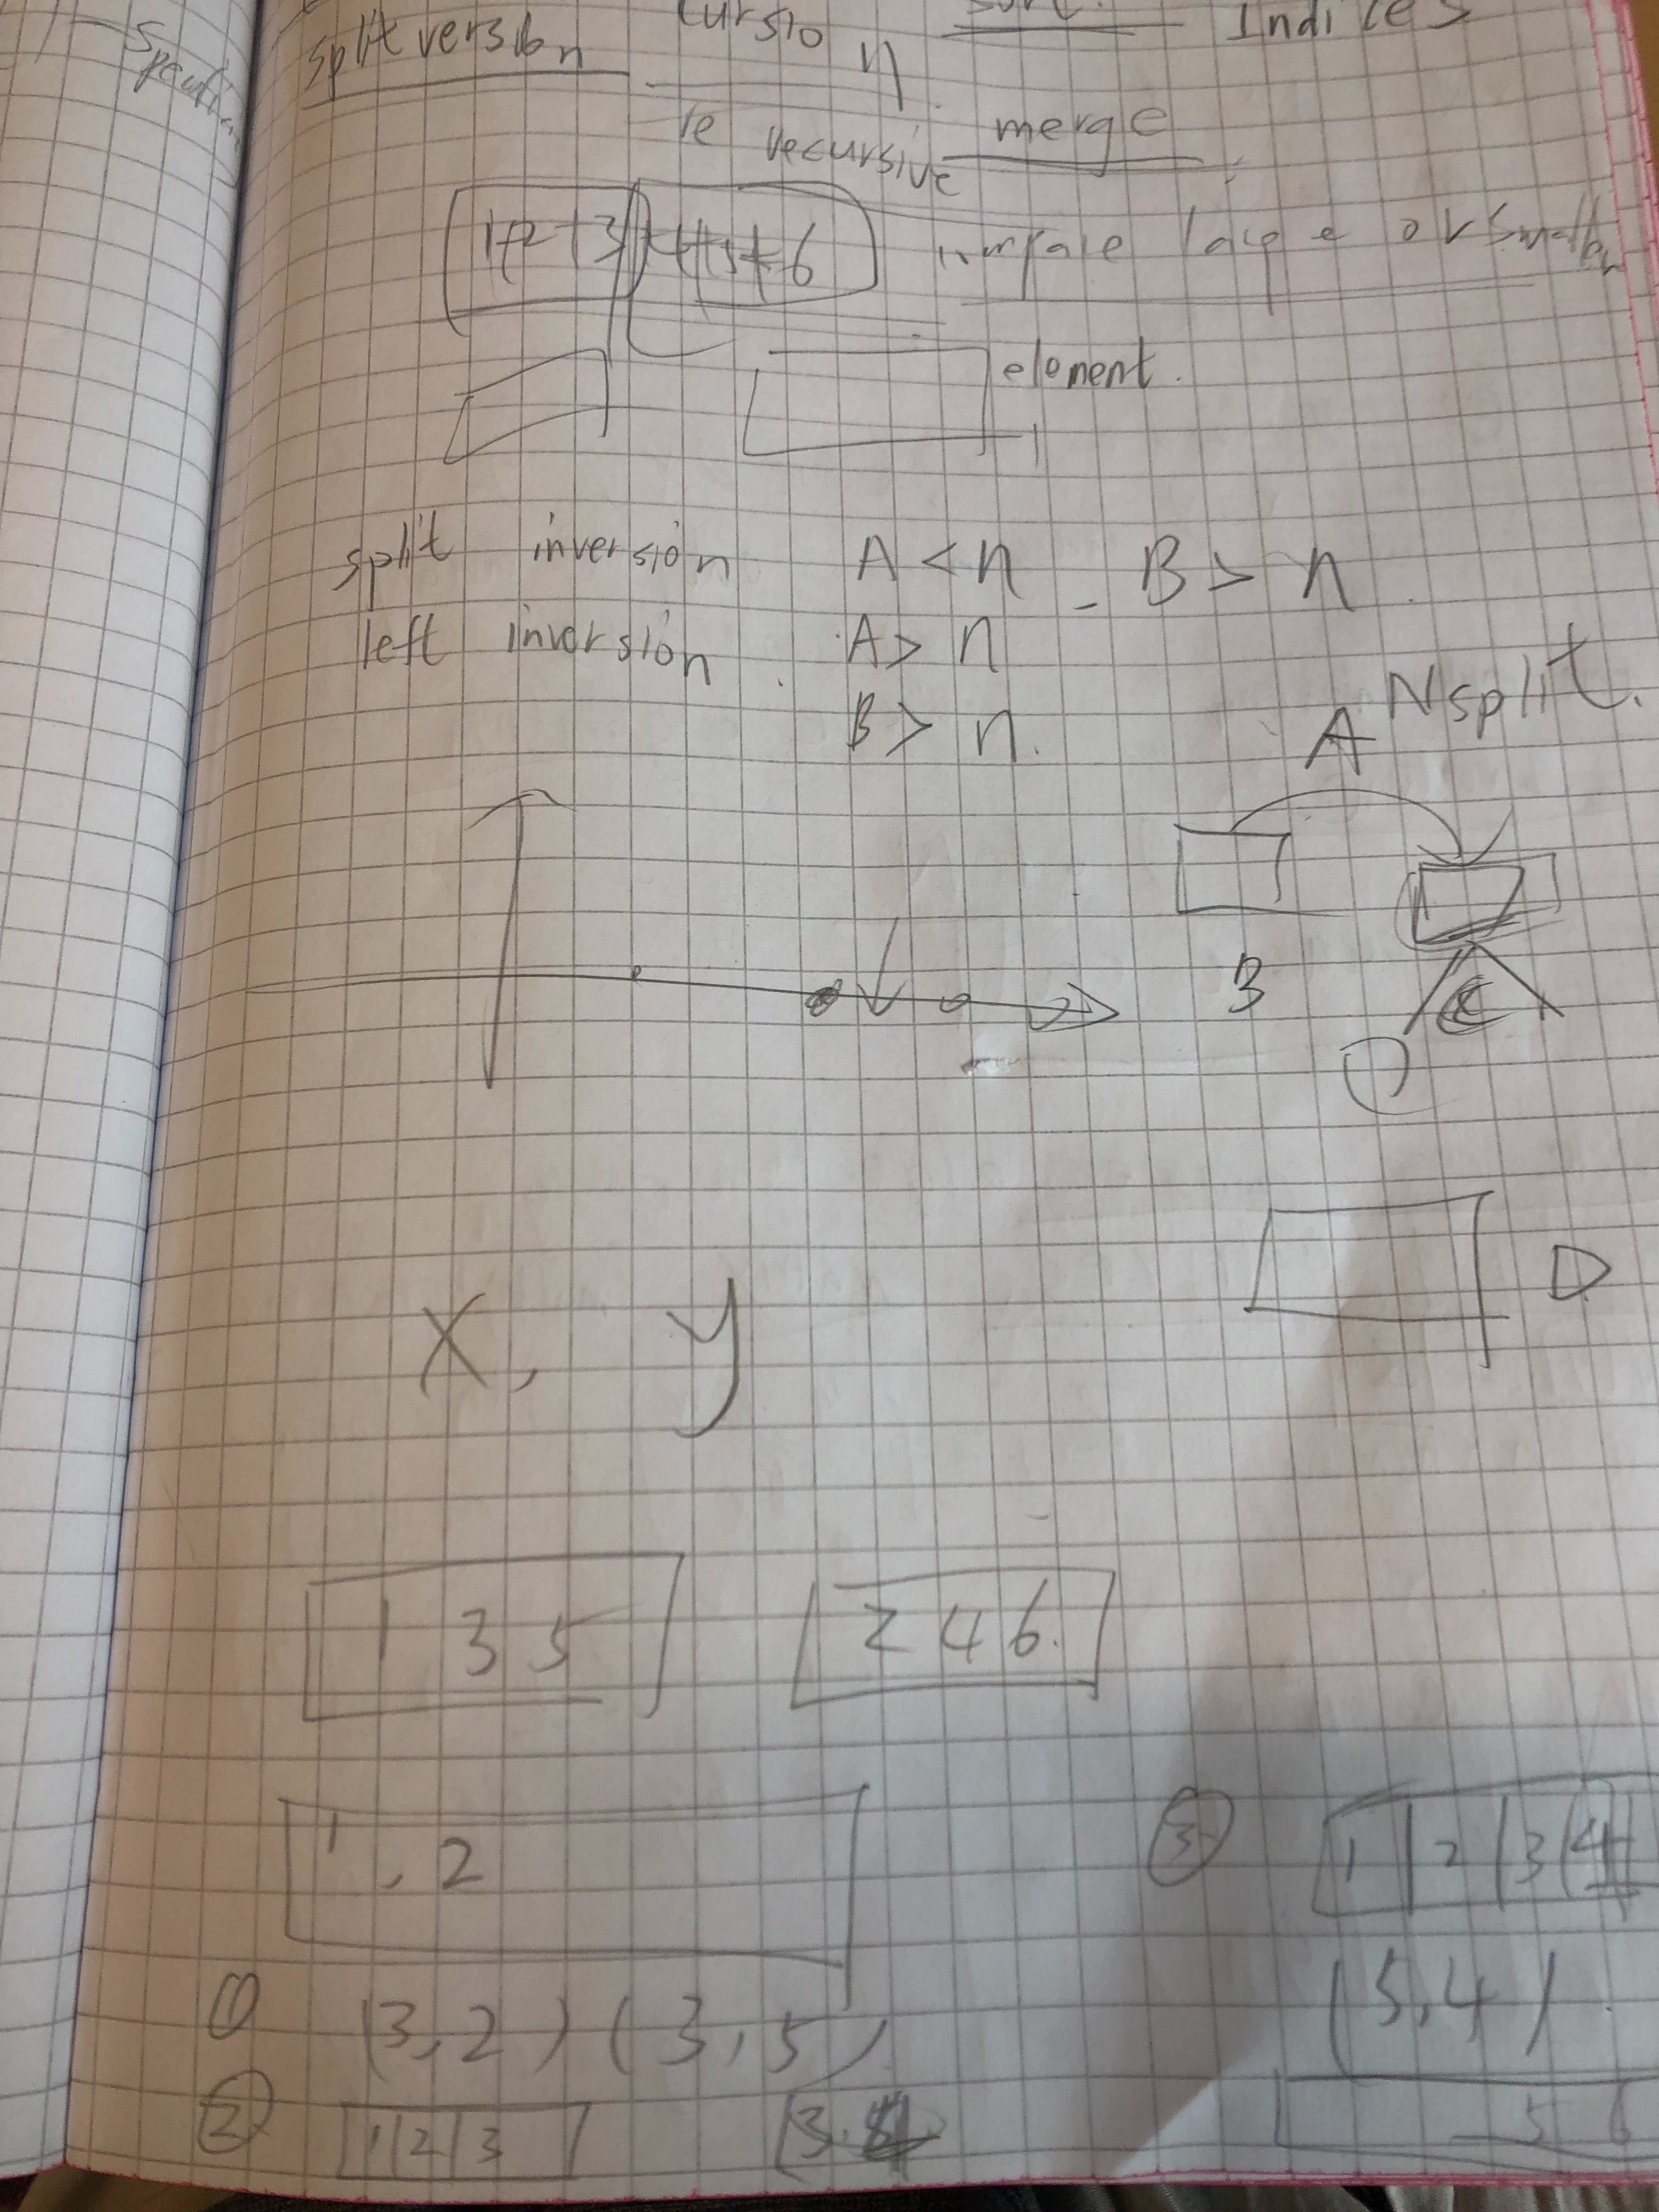 split version cursion sort. Indices
re recursive merge
1+2+3+4+5+6 large or smaller
element.
split inversion A < n - B > n.
left inversion. A > n
B > n.
A Nsplit.
B
D
X, y
1 3 5 2 4 6.
1, 2 ③ 1 | 2 | 3 | 4 |
① (3, 2) (3, 5) (5, 4)
② 1 | 2 | 3 (3. 5 6